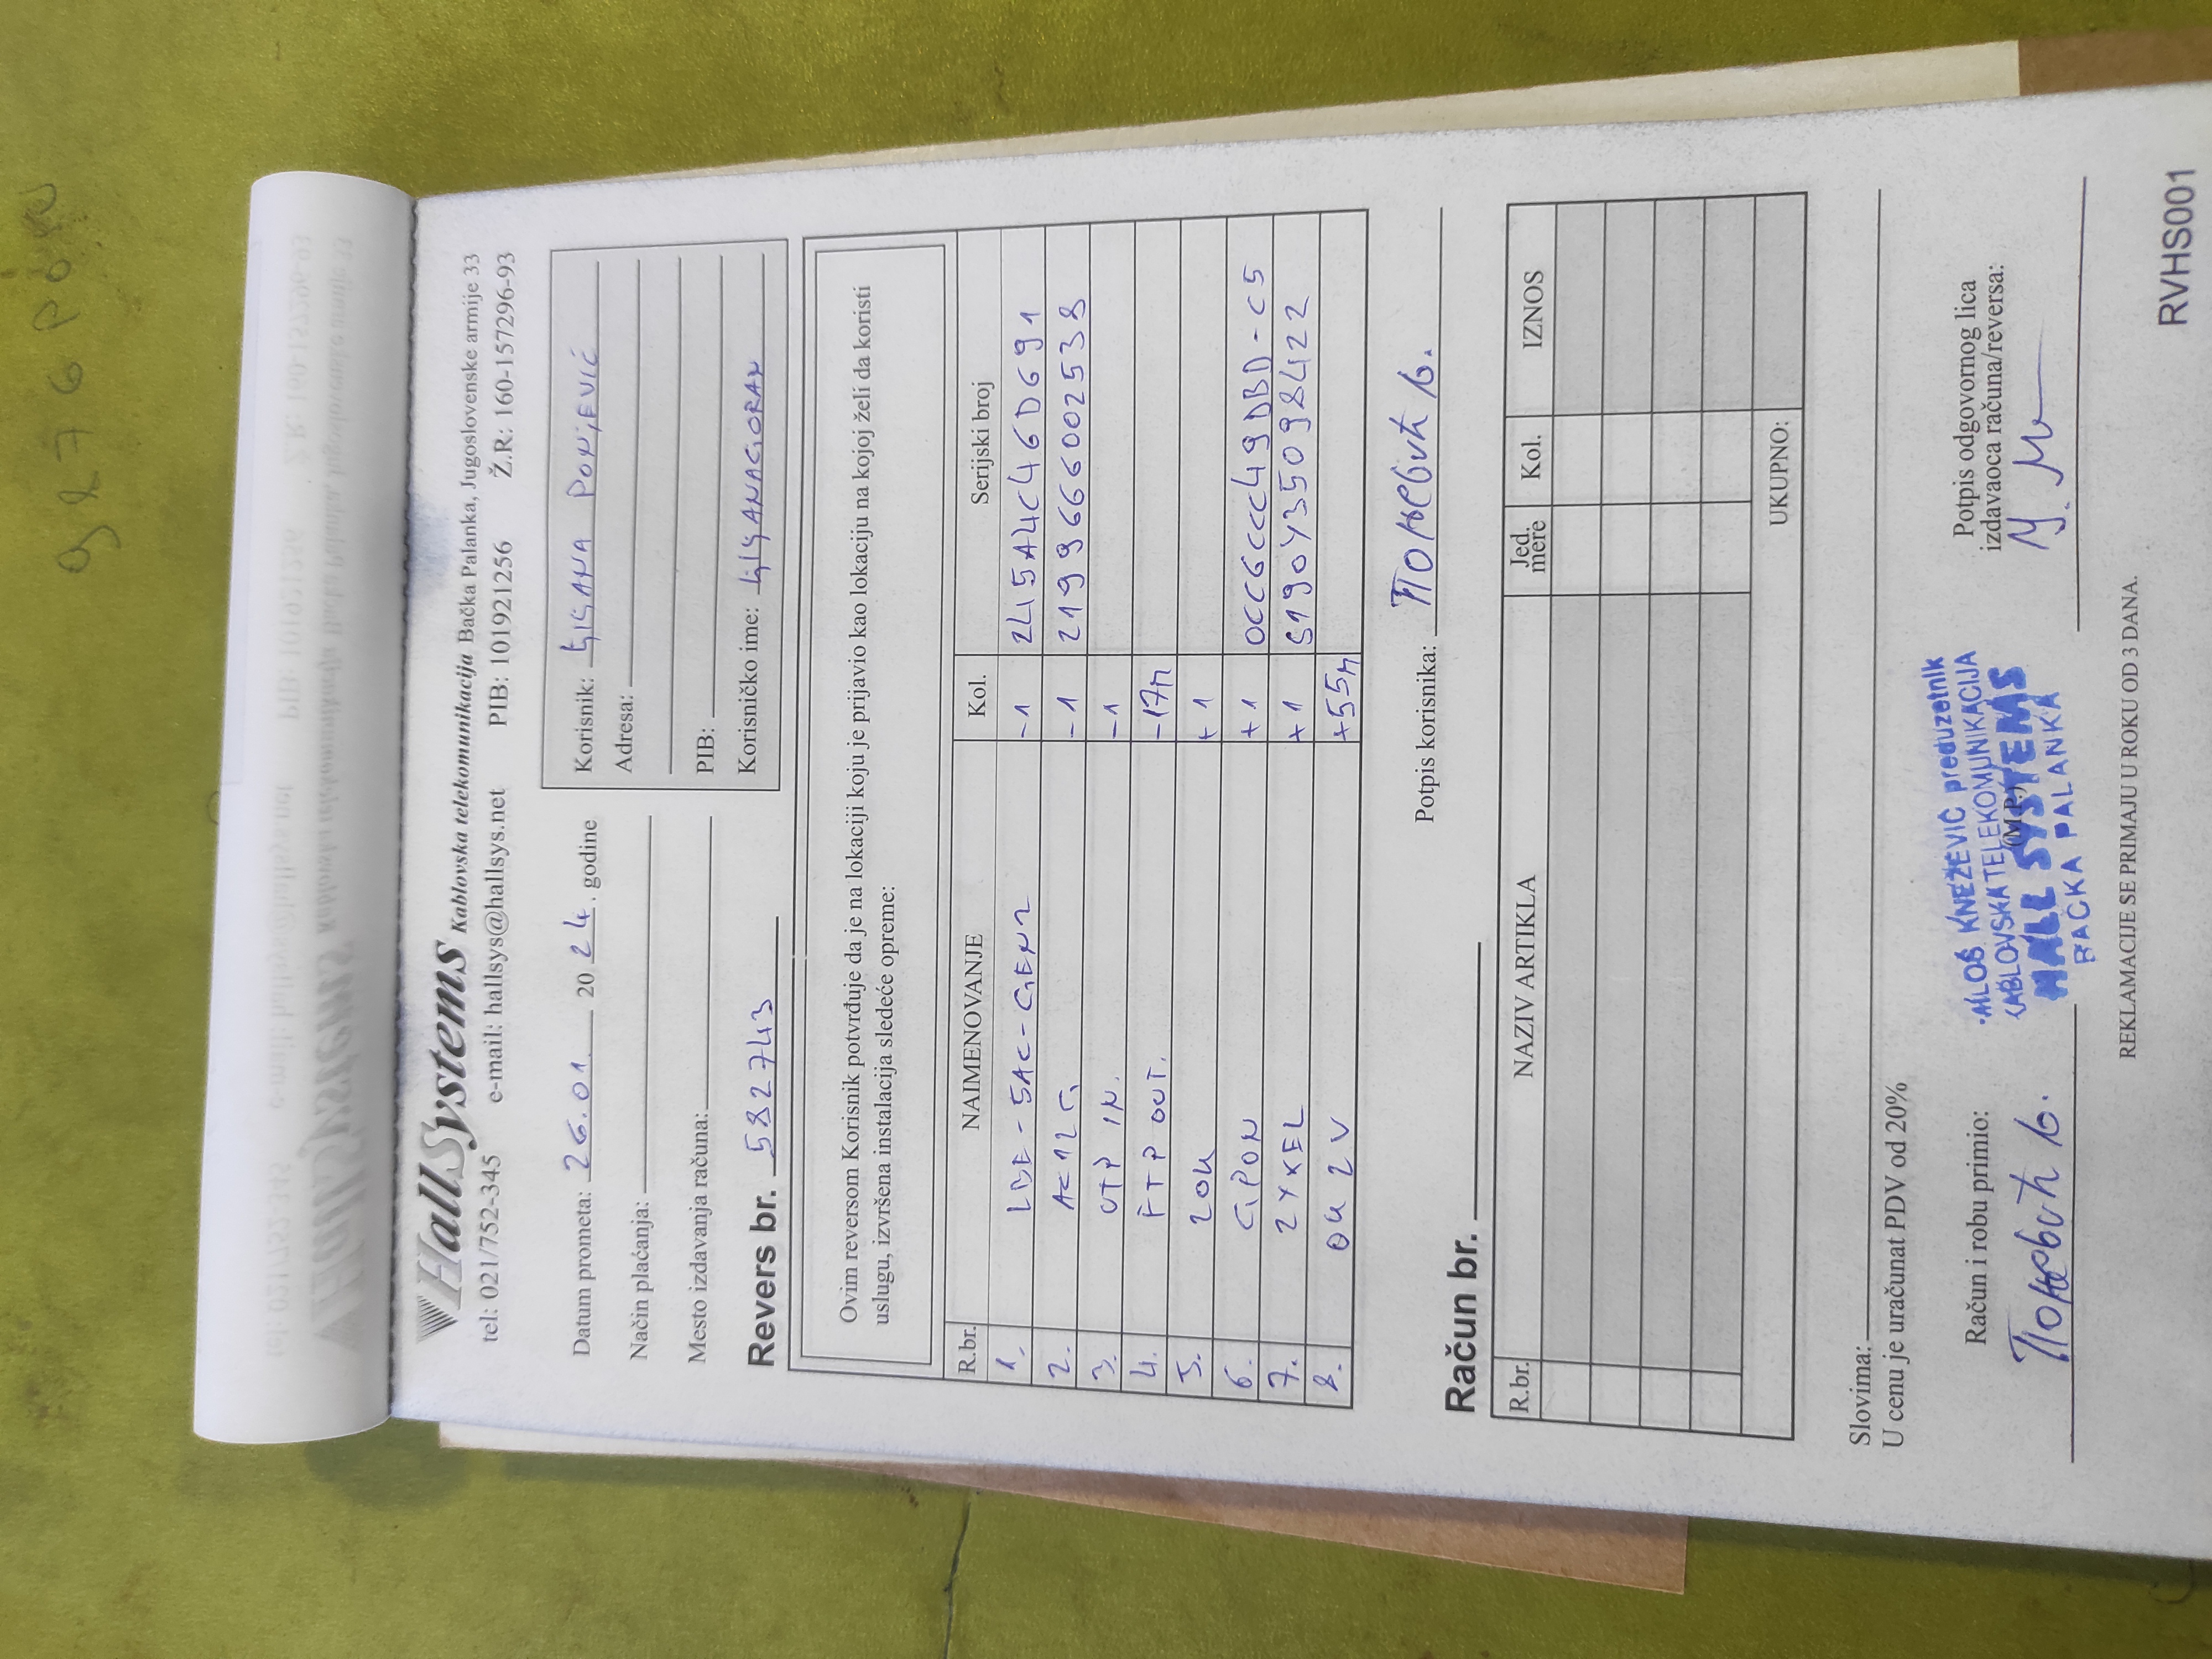 HallSystems Kablovska telekomunikacija Bačka Palanka, Jugoslovenske armije 33
tel: 021/752-345 e-mail: hallsys@hallsys.net PIB: 101921256 Ž.R: 160-157296-93
Datum prometa: 26.01 2024. godine
Način plaćanja:
Mesto izdavanja računa:
Korisnik: LJILJANA PONJEVIĆ
Adresa:
PIB:
Korisničko ime: LJILJANAGORAN
Revers br. 582743
Ovim reversom Korisnik potvrđuje da je na lokaciji koju je prijavio kao lokaciju na kojoj želi da koristi
uslugu, izvršena instalacija sledeće opreme:
R.br. NAIMENOVANJE Kol. Serijski broj
1. LBE-5AC-GEN2 -1 245A4C46D691
2. AC12G -1 2199666002538
3. UTP IN. -1
4. FTP OUT. -17m
5. ZOK +1
6. GPON +1 0CC6CCC49DBD-C5
7. ZYXEL +1 S190Y35098422
8. OK 2V +55m
Potpis korisnika: Поњевић Б.
Račun br.
R.br. NAZIV ARTIKLA Jed. mere Kol. IZNOS
UKUPNO:
Slovima:
U cenu je uračunat PDV od 20%
Račun i robu primio:
Поњевић Б.
MILOŠ KNEŽEVIĆ preduzetnik
KABLOVSKA TELEKOMUNIKACIJA
(M.P.)
HALL SYSTEMS
BAČKA PALANKA
Potpis odgovornog lica
izdavaoca računa/reversa:
REKLAMACIJE SE PRIMAJU U ROKU OD 3 DANA.
RVHS001